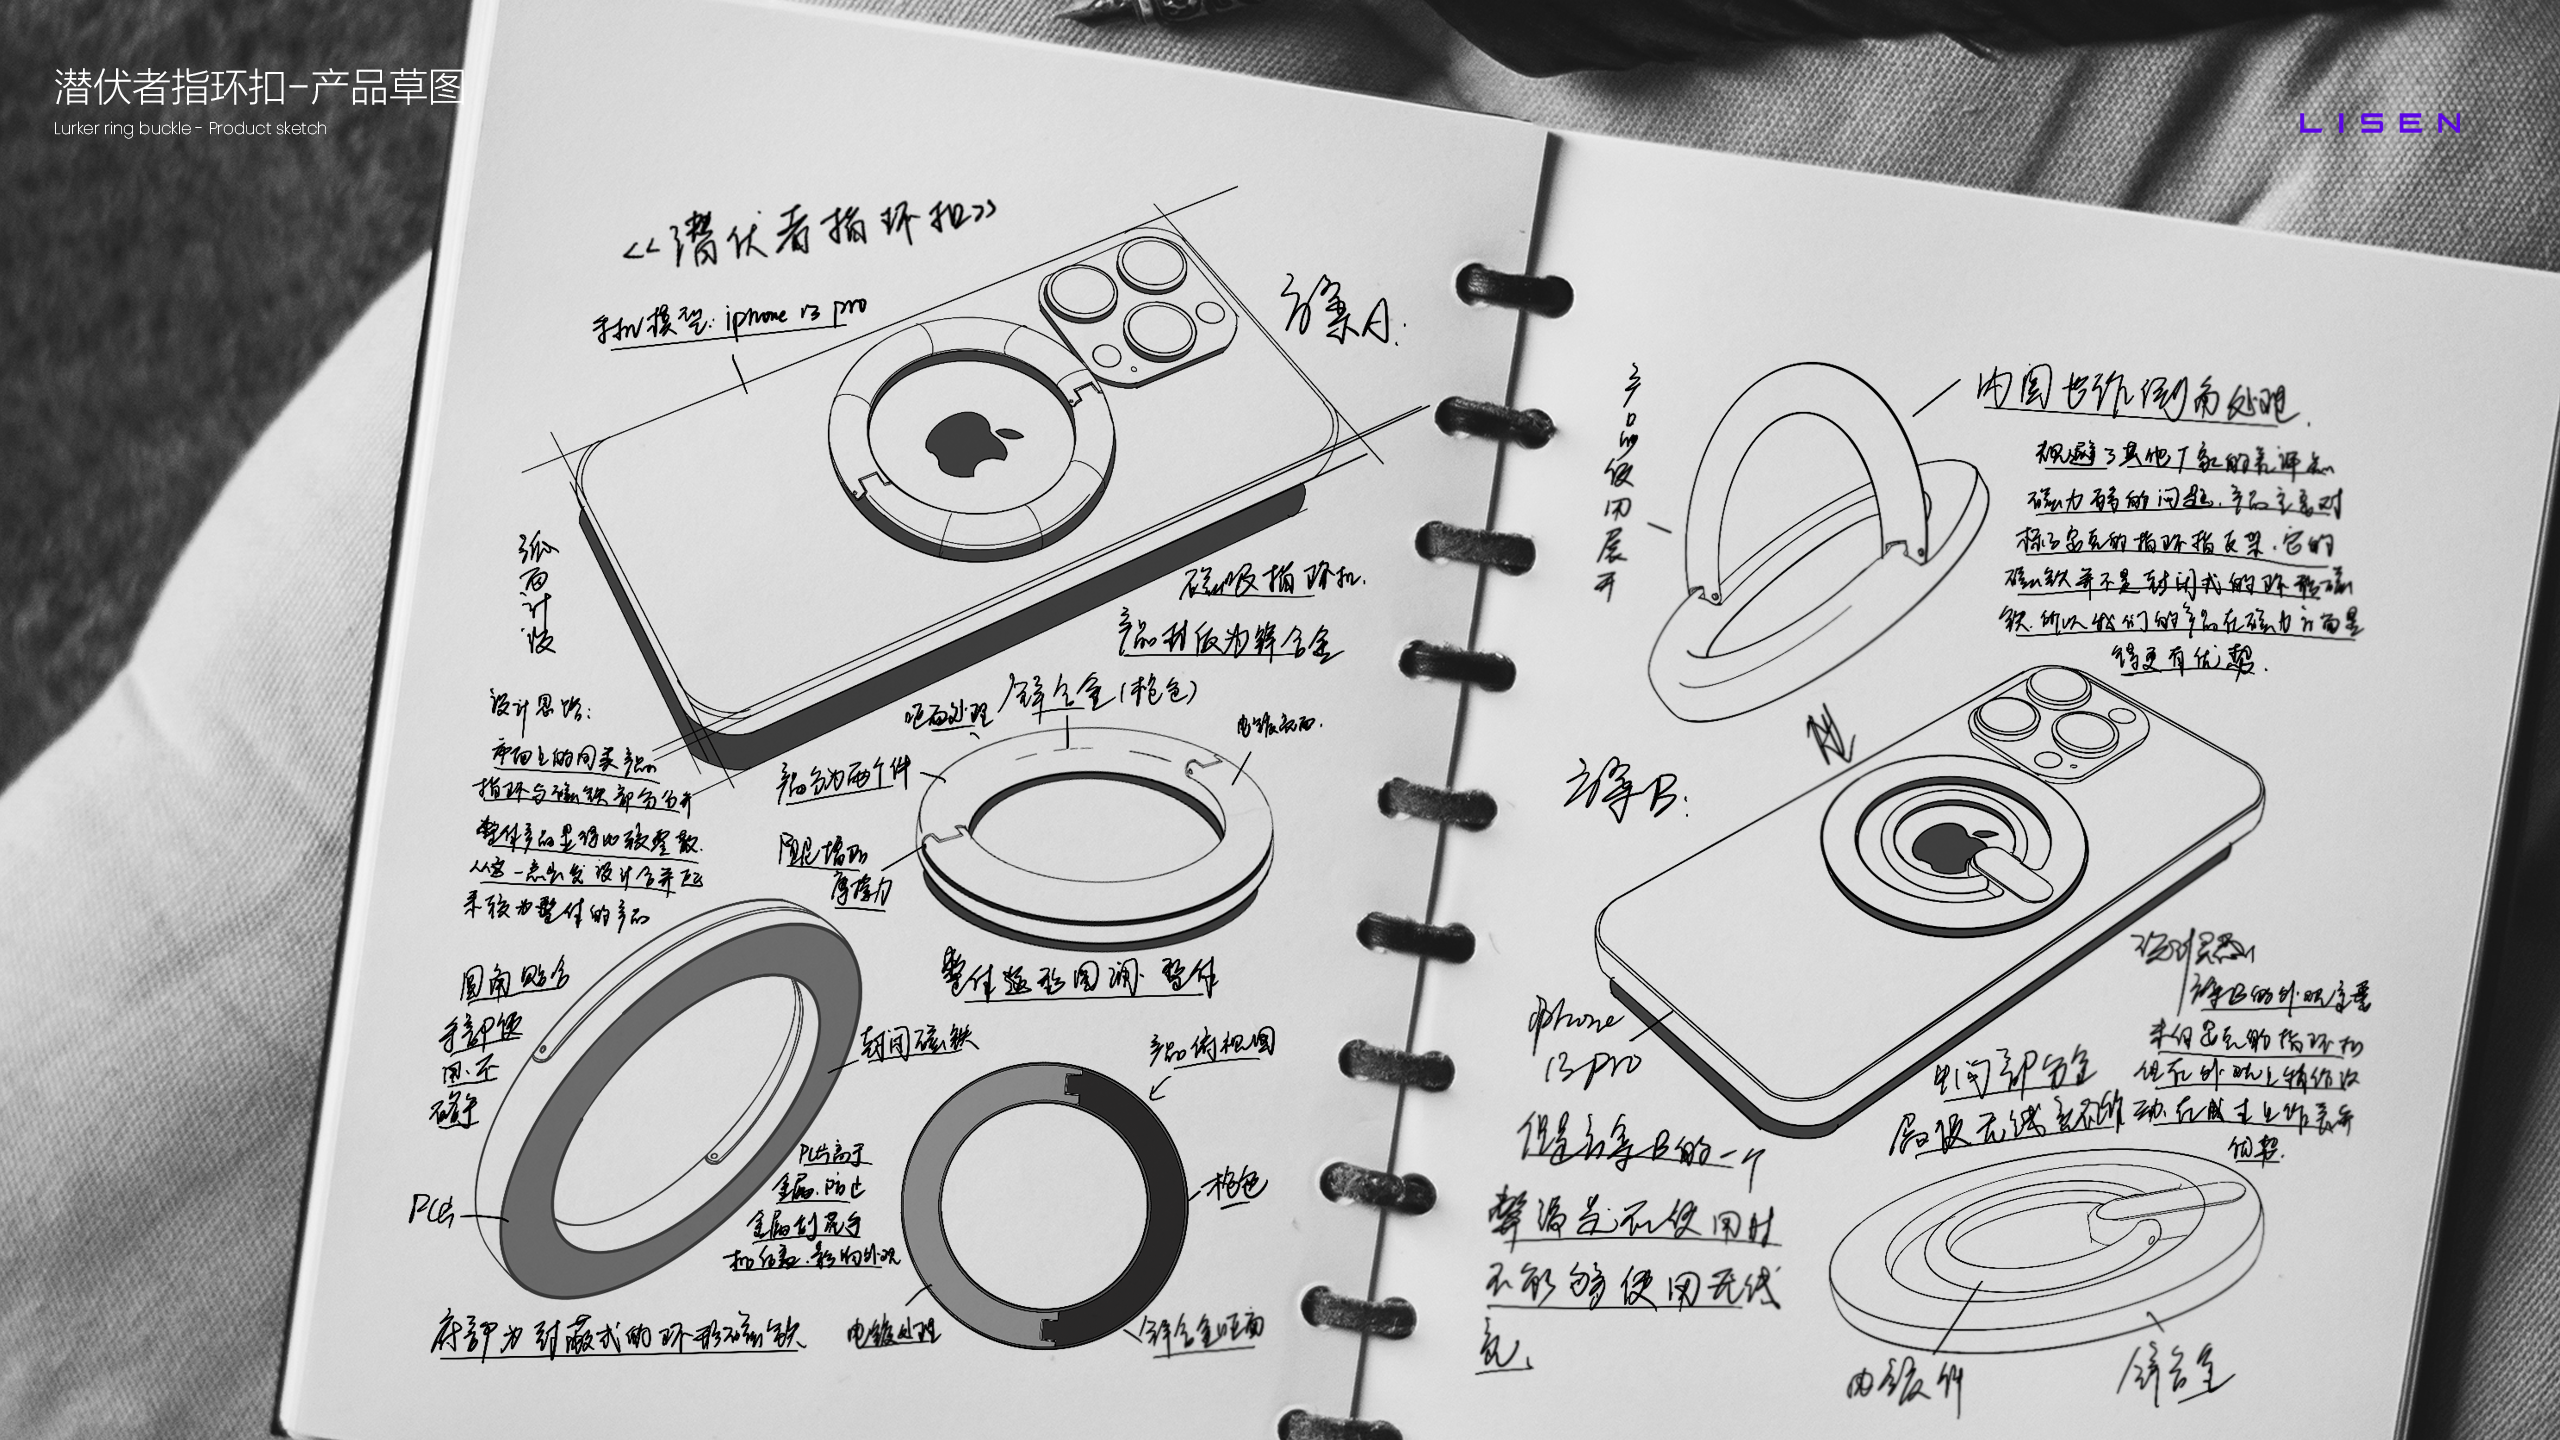 潜伏者指环扣-产品草图
Lurker ring buckle - Product sketch
LISEN
<<潜伏者指环扣>>
手机模型: iphone 13 pro
方案A.
弧面计设
磁吸指环扣.
产品材质为锌合金
设计思路:
市面上的同类产品
指环与磁铁部分分开
整体产品显得比较零散.
从这一点出发设计合并
较为整体的产品
哑面处理
锌合金(枪色)
电镀亚面.
产品分为两个件
阻尼增加
摩擦力
整体造形圆润.整体
圆角贴合
手部使
用.不
磕手
封闭磁铁
产品俯视图
PC片
PC片高于
金属.防止
金属刮花手
机后盖.影响外观
枪色
电镀处理
锌合金哑面
底部为封蔽式的环形磁铁
产品的使用展开
内圈也作倒角处理.
规避了其他厂家的差评点
磁力弱的问题.产品主要对
标了的指环指支架.它的
磁铁并不是封闭式的环形磁
铁.所以我们的产品在磁力方面是
更有优势.
方案B:
iphone
13 pro
方案B的外观主要
来自的指环扣
但在外观上稍作改
动.在成本上作
优势.
中间部分全
但是方案B的一个
弊端是在使用时
不能够使用无线
充.
内镀件
锌合金